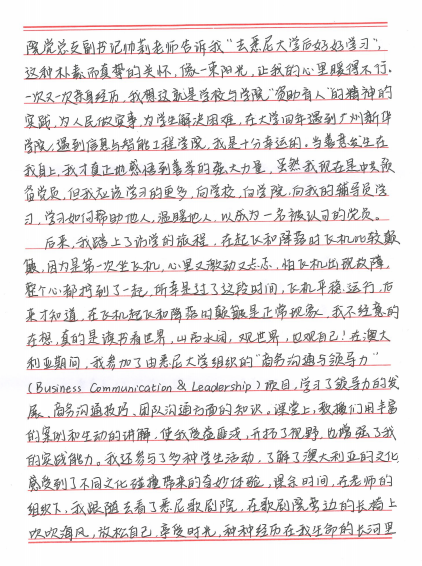 院党总支副书记帅莉老师告诉我“去悉尼大学后好好学习”，
这种朴素而真挚的关怀，像一束阳光，让我的心里暖得不行。
一次又一次亲身经历，我想这就是学校与学院“资助育人”的精神的
实践，为人民做实事，为学生解决困难，在大学四年遇到广州新华
学院，遇到信息与智能工程学院，我是十分幸运的。当善意发生在
我身上，我才真正地感悟到善举的强大力量，虽然我现在是中共预
备党员，但我应该学习的更多，向学校，向学院，向我的辅导员学
习，学习如何帮助他人，温暖他人，以成为一名被认可的党员。
后来，我踏上了访学的旅程，在起飞和降落时飞机比较颠
簸，因为是第一次坐飞机，心里又激动又忐忑，怕飞机出现故障，
整个心都拧到了一起，所幸是过了这段时间，飞机平稳运行，后
来才知道，在飞机起飞和降落时颠簸是正常现象，我不经意的
在想，真的是读书看世界，山高水阔，观世界，也观自己！在澳大
利亚期间，我参加了由悉尼大学组织的“商务沟通与领导力”
(Business Communication & Leadership) 项目，学习了领导力的发
展、商务沟通技巧、团队沟通方面的知识，课堂上，教授们用丰富
的案例和生动的讲解，使我受益匪浅，开拓了视野，也增强了我
的实践能力。我还参与了多种学生活动，了解了澳大利亚的文化，
感受到了不同文化碰撞带来的奇妙体验，课余时间，在老师的
组织下，我跟随去看了悉尼歌剧院，在歌剧院旁边的长椅上
吹吹海风，放松自己，享受时光，种种经历在我生命的长河里